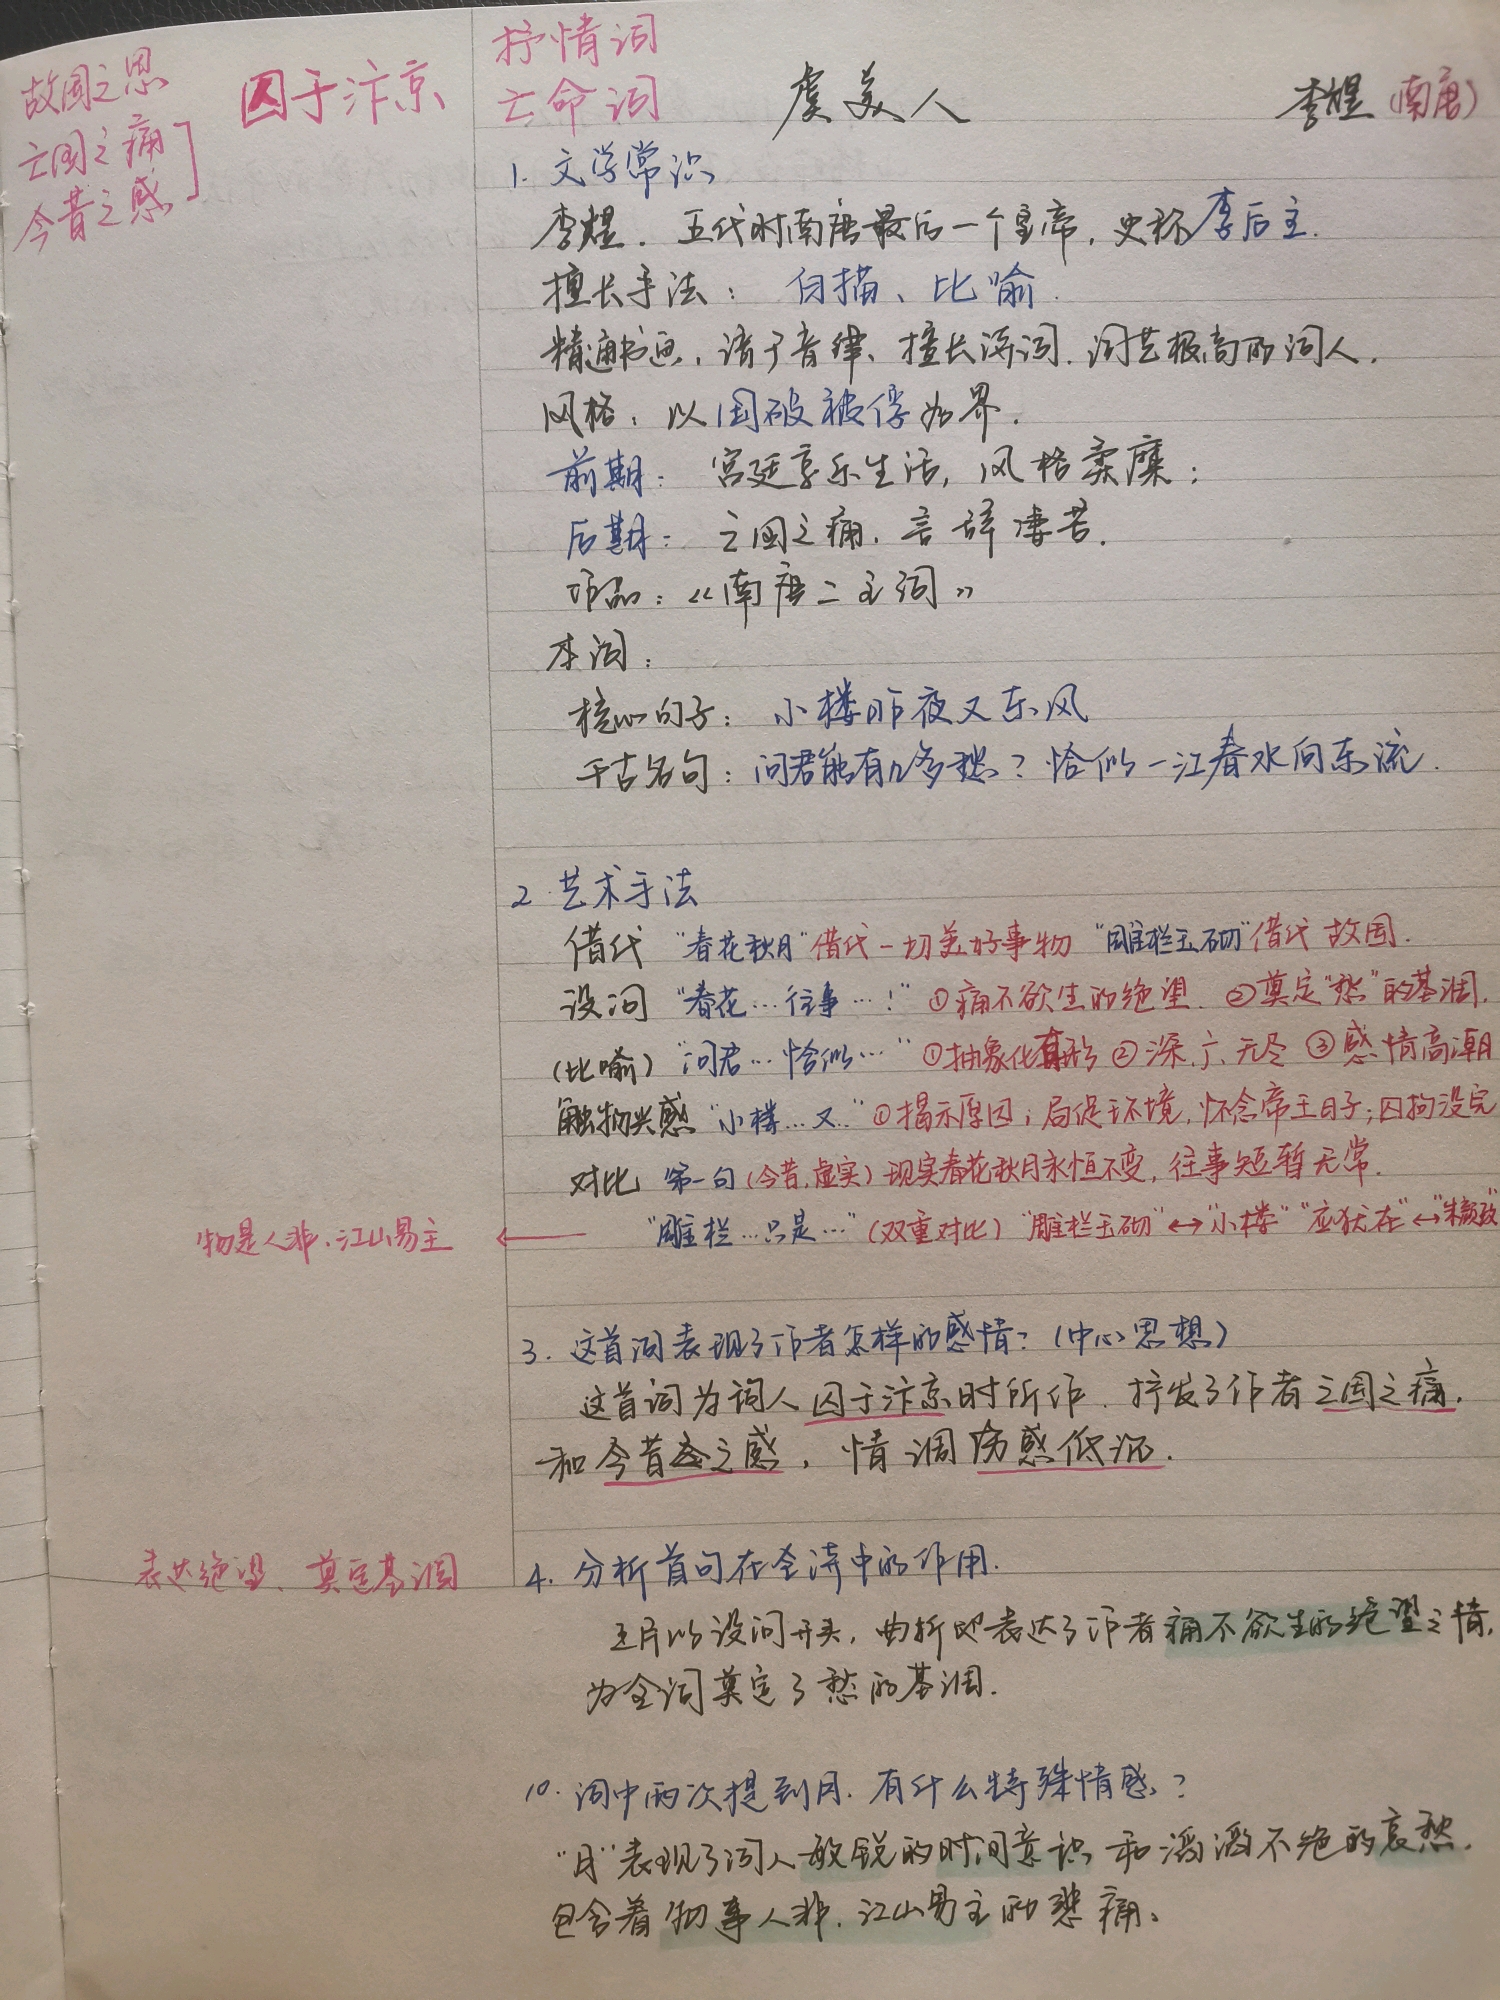 故国之思
亡国之痛
今昔之感
囚于汴京
抒情词
亡命词
虞美人
李煜(南唐)
1. 文学常识
李煜. 五代时南唐最后一个皇帝, 史称李后主.
擅长手法: 白描、比喻.
精通书画, 谙于音律、擅长诗词. 词艺极高的词人.
风格: 以国破被俘为界.
前期: 宫廷享乐生活, 风格柔靡;
后期: 亡国之痛, 言辞凄苦.
作品:《南唐二主词》
本词:
核心句子: 小楼昨夜又东风
千古名句: 问君能有几多愁? 恰似一江春水向东流.
2. 艺术手法
借代 "春花秋月"借代一切美好事物 "雕栏玉砌"借代故国.
设问 "春花…往事…!" ①痛不欲生的绝望. ②奠定"愁"的基调.
(比喻) "问君…恰似…" ①抽象化有形 ②深、广、无尽 ③感情高潮
触物兴感 "小楼…又…" ①揭示原因; 局促环境, 怀念帝王日子; 囚拘没完
对比 第一句(今昔,虚实) 现实春花秋月永恒不变, 往事短暂无常.
"雕栏…只是…" (双重对比) "雕栏玉砌"↔"小楼" "应犹在"↔"朱颜改"
物是人非、江山易主 ←
3. 这首词表现了作者怎样的感情? (中心思想)
这首词为词人囚于汴京时所作. 抒发了作者亡国之痛.
和今昔之感, 情调伤感低沉.
表达绝望、奠定基调
4. 分析首句在全诗中的作用.
上片以设问开头, 曲折地表达了作者痛不欲生的绝望之情,
为全词奠定了愁的基调.
10. 词中两次提到月. 有什么特殊情感?
"月"表现了词人敏锐的时间意识 和滔滔不绝的哀愁.
包含着物事人非、江山易主的悲痛。